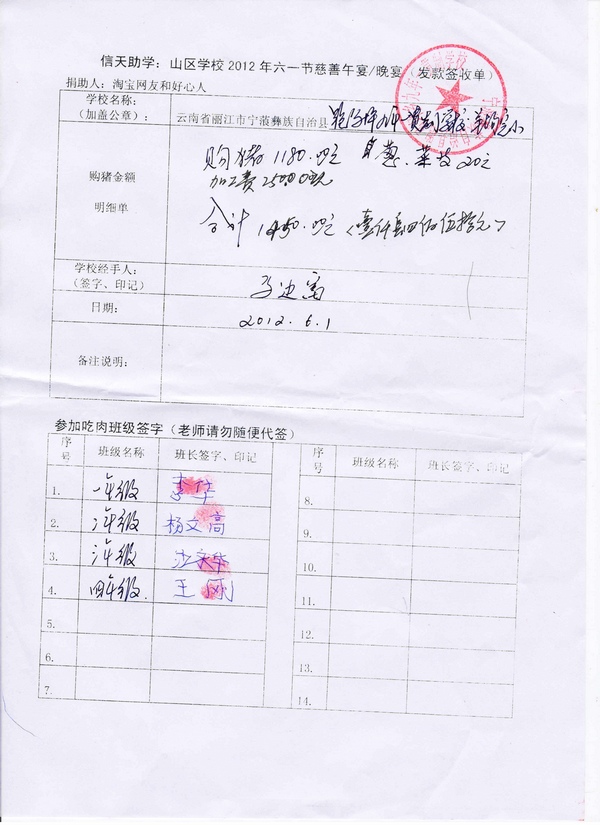 信天助学：山区学校2012年六一节慈善午宴/晚宴（发款签收单）
捐助人：淘宝网友和好心人
学校名称：
（加盖公章）：
云南省丽江市宁蒗彝族自治县
购猪金额
明细单
购猪1180.00元
菜 20元
加工费250.00元
合计 1450.00元（壹仟肆佰伍拾元）
学校经手人：
（签字、印记）
日期：
2012.6.1
备注说明：
参加吃肉班级签字（老师请勿随便代签）
序号 班级名称 班长签字、印记 序号 班级名称 班长签字、印记
1. 一年级 李华 8.
2. 二年级 杨文高 9.
3. 三年级 10.
4. 四年级. 王刚 11.
5. 12.
6. 13.
7. 14.